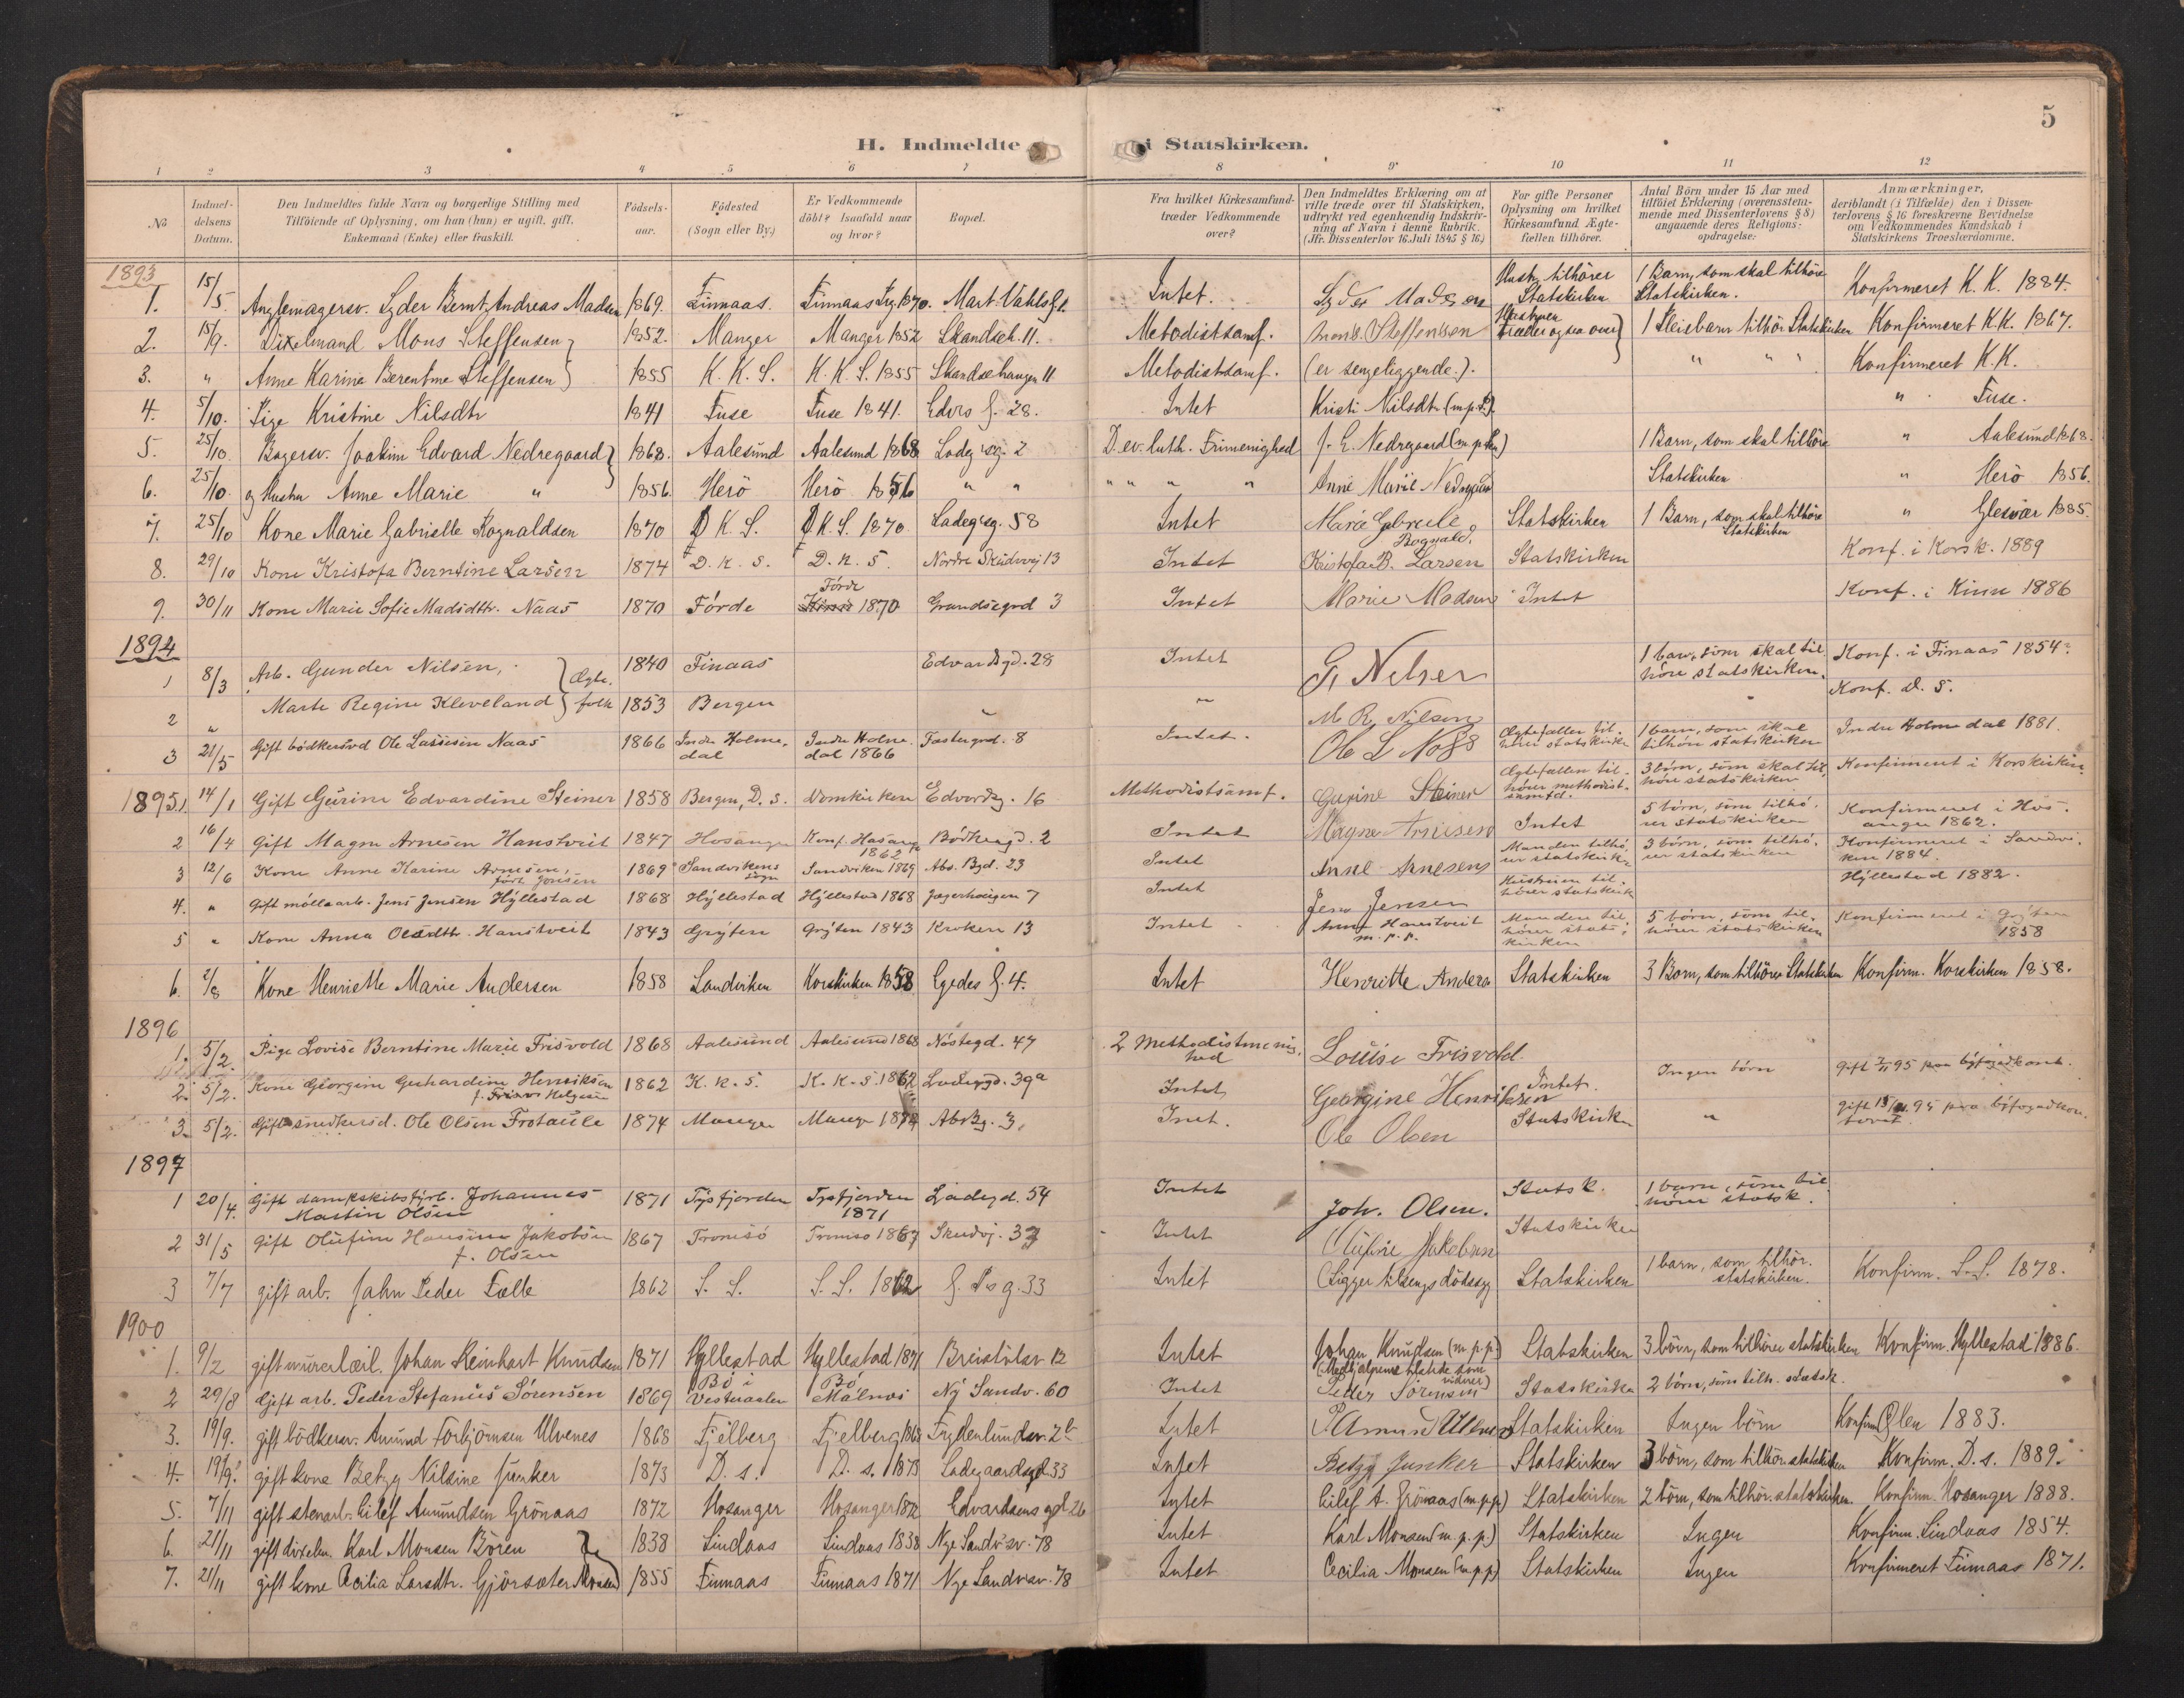 5
H. Indmeldte i Statskirken.
1 2 3 4 5 6 7 8 9 10 11 12
No
Indmel-
delsens
Datum.
Den Indmeldtes fulde Navn og borgerlige Stilling med
Tilföiende af Oplysning, om han (hun) er ugift, gift,
Enkemand (Enke) eller fraskilt.
Födsels-
aar.
Födested
(Sogn eller By.)
Er Vedkommende
döbt? Isaafald naar
og hvor?
Bopæl.
Fra hvilket Kirkesamfund
træder Vedkommende
over?
Den Indmeldtes Erklæring om at
ville træde over til Statskirken,
udtrykt ved egenhændig Indskriv-
ning af Navn i denne Rubrik.
(Jfr. Dissenterlov 16 Juli 1845 § 16)
For gifte Personer
Oplysning om hvilket
Kirkesamfund Ægte-
fællen tilhörer.
Antal Börn under 15 Aar med
tilföiet Erklæring (overensstem-
mende med Dissenterlovens § 8)
angaaende deres Religions-
opdragelse:
Anmærkninger,
deriblandt (i Tilfælde) den i Dissen-
terlovens § 16 foreskrevne Bevidnelse
om Vedkommendes Kundskab i
Statskirkens Troeslærdomme.
1893
1. 15/5 Lyder Bernt Andreas Madsen 1869. Finnaas. Mart. Vahlsg. Intet. Lyder Madsen Hustr. tilhörer Statskirken 1 Barn, som skal tilhöre Statskirken. Konfirmeret K.K. 1884.
2. 15/9. Mons Steffensen 1852. Manger Manger 1852 Skandseh. 11. Metodistsamf. Mons Steffensen Hustruen træder ogsaa over 1 Pleiebarn tilhör. Statskirken Konfirmeret K.K. 1867.
3. " Anne Karine Berentine Steffensen 1855 K. K. S. K. K. S. 1855 Skandsehaugen 11 Metodistsamf. (er sengeliggende.). " " Konfirmeret K.K.
4. 5/10. Pige Kristine Nilsdtr 1841 Fuse Fuse 1841. Edvs g. 28. Intet Kristi Nilsdtr (m.p.P.) " Fuse.
5. 25/10 Bagersv. Joakim Edvard Nedregaard 1868. Aalesund Aalesund 1868 Ladeg.sg. 2 D. ev. luth. Frimenighed J. E. Nedregaard 1 Barn, som skal tilhöre " Aalesund 1868.
6. 25/10. og Hustru Anne Marie " 1856. Herö Herö 1856 " " " " " " Anne Marie Nedregaard Statskirken " Herö 1856.
7. 25/10 Kone Marie Gabrielle Rognaldsen 1870 D K. S. D K. S. 1870. Ladeg.sg. 58 Intet Statskirken 1 Barn, som skal tilhöre Statskirken " Glesvær 1885.
8. 29/10 Kone Kristofa Berntine Larsen 1874 D. K. S. D. K. S. Nordre Skudevej 13 Intet Kristofa B. Larsen Statskirken Konf. i Korsk. 1889
9. 30/11 Kone Marie Sofie Madsdtr. Naas 1870 Förde Förde 1870 3 Intet Marie Madsen Intet Konf. i Kinn 1886
1894
1 8/3 Arb. Gunder Nilsen, } Ægte- 1840 Finaas Edvardsgd. 28 Intet G. Nilsen 1 barn, som skal til- höre statskirken. Konf. i Finaas 1854?
2 " Marte Regine Kleveland } folk 1853 Bergen " " M. R. Nilsen " Konf. D. S.
3 21/5 Gift bödkersvd Ole Lassesen Naas 1866 Indre Holme- dal Indre Holme- dal 1866 Fostergrd. 8 Intet. Ole L Naas Ægtefællen til- hörer statskirken 1 barn, som skal tilhöre statskirken Indre Holmedal 1881.
1895. 1. 14/1 Gift Gurine Edvardine Steiner 1858 Bergen, D. S. Domkirken Edvardsg. 16 Methodistsamf. Gurine Steiner Ægtefællen til- hörer methodist- samfd. 3 börn, som skal til- höre statskirken Konfirmeret i Korskirken.
2 16/4 Gift Magne Arnesen Hanstveit 1847 Hosanger Konf. Hosanger 1862 Bödkergd. 2 Intet Magne Arnesen Intet 5 börn, som tilhö- rer statskirken Konfirmeret i Hos- anger 1862.
3 12/6 Kone Anne Karine Arnesen, født Jensen 1869 Sandvikens sogn Sandviken 1869 Abs. Bgd. 23 Intet Anne Arnesens Manden tilhö- rer statskirken 3 börn, som tilhö- rer statskirken Konfirmeret i Sandvi- ken 1884.
4. " Gift möllearb. Jens Jensen Hyllestad 1868 Hyllestad Hyllestad 1868 Jægerhaugen 7 Intet Jens Jensen Hustruen til- hörer statskirk Hyllestad 1882.
5 " Kone Anna Olesdtr. Hanstveit 1843 Gryten Gryten 1843 Kroken 13 Intet Anna Hanstveit m.p.p. Manden til- hörer stats- kirken 5 börn, som til- hörer statskirken Konfirmeret i Gryten 1858
6. 2/8 Kone Henriette Marie Andersen 1858 Sandviken Korskirken 1858 Egedes g. 4. Intet Henriette Andersen Statskirken 3 Börn, som tilhörer Statskirken Konfirm. Korskirken 1858.
1896
1. 5/2. Pige Lovise Berntine Marie Frisvold 1868 Aalesund Aalesund 1868 Nöstegd. 47 2 Methodistmenig- hed Louise Frisvold
2. 5/2. Kone Georgine Gerhardine Henriksen f. Helgesen 1862 K. K. S. K. K. S. 1862 Ladeggd. 39a Intet Georgine Henriksen Intet. Ingen börn 95 paa byfogedkont.
3. 5/2. Gift snedkersd. Ole Olsen Frotaule 1874 Manger Manger 1874 Absbg. 3, Intet. Ole Olsen Statskirken " 95 paa byfogedkon- toret.
1897
1 20/4. Gift dampskibsfyrb. Johannes Martin Olsen 1871 Tysfjorden Tysfjorden 1871 Ladegd. 54 Intet Joh. Olsen. Statsk. 1 barn, som til- hörer statsk.
2 31/5 Gift Olufine Hansine Jakobsen f. Olsen 1867 Tromsö Tromsö 1867 Skudvj. 33 Intet Olufine Jakobsen Statskirken
3 7/7 gift arb. Jahn Peder Fælle 1862 S. S. S. S. 1862 33 Intet (Ligger tilsengs dödssyg Statskirken 1 barn, som tilhör. statskirken. Konfirm. S.S. 1878.
1900
1. 9/2 gift Johan Reinhart Knudsen 1871 Hyllestad Hyllestad 1871 12 Intet Johan Knudsen (m.p.p.) Statskirken 3 börn, som tilhörer statskirken Konfirm. Hyllestad 1886.
2 29/8 Gift arb. Peder Stefanus Sörensen 1869 Bö i Vesteraalen Bö Malnæs Ny Sandv. 60 Intet Peder Sörensen Statskirken 2 börn, som tilh. statsk.
3. 19/9. gift bödkersv. Amund Torbjörnsen Ulvenes 1868 Fjelberg Fjelberg 1868 Frydenlundsv. 2b Intet Amund Ulvenes Statskirken Ingen börn Konfirm. Ølen 1883.
4. 19/9. gift kone Betzy Nilsine Junker 1873 D. s. D. s. 1873 Ladegaardsgd 33 Intet Betzy Junker Statskirken 3 börn, som tilhör. statskirken Konfirm. D. s. 1889.
5. 7/11 gift stenarb. Eilef Amundsen Grönaas 1872 Hosanger Hosanger 1872 Edvardsens gd. 26 Intet Eilef A. Grönaas (m.p.p) Statskirken 2 börn, som tilhör. statskirken. Konfirm. Hosanger 1888.
6. 21/11 gift Karl Monsen Bören 1838 Lindaas Lindaas 1838 Nye Sandvsv. 78 Intet Karl Monsen (m.p.p.) Statskirken Ingen Konfirm. Lindaas 1854.
7. 21/11 gift kone Cecilia Larsdtr. Gjörsæter Monsen 1855 Finnaas Finnaas 1871 Nye Sandvsv. 78 Intet Cecilia Monsen (m.p.p) Statskirken Ingen Konfirmeret Finnaas 1871.